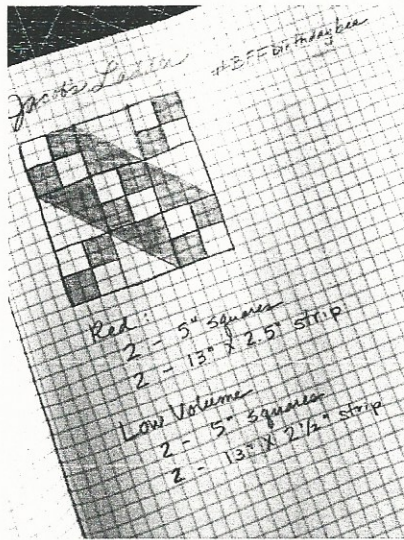 Jacob's Ladder
#BFFbirthdaybee
Red:
2 - 5" squares
2 - 13" X 2.5" strip
Low Volume
2 - 5" squares
2 - 13" X 2 1/2" strip